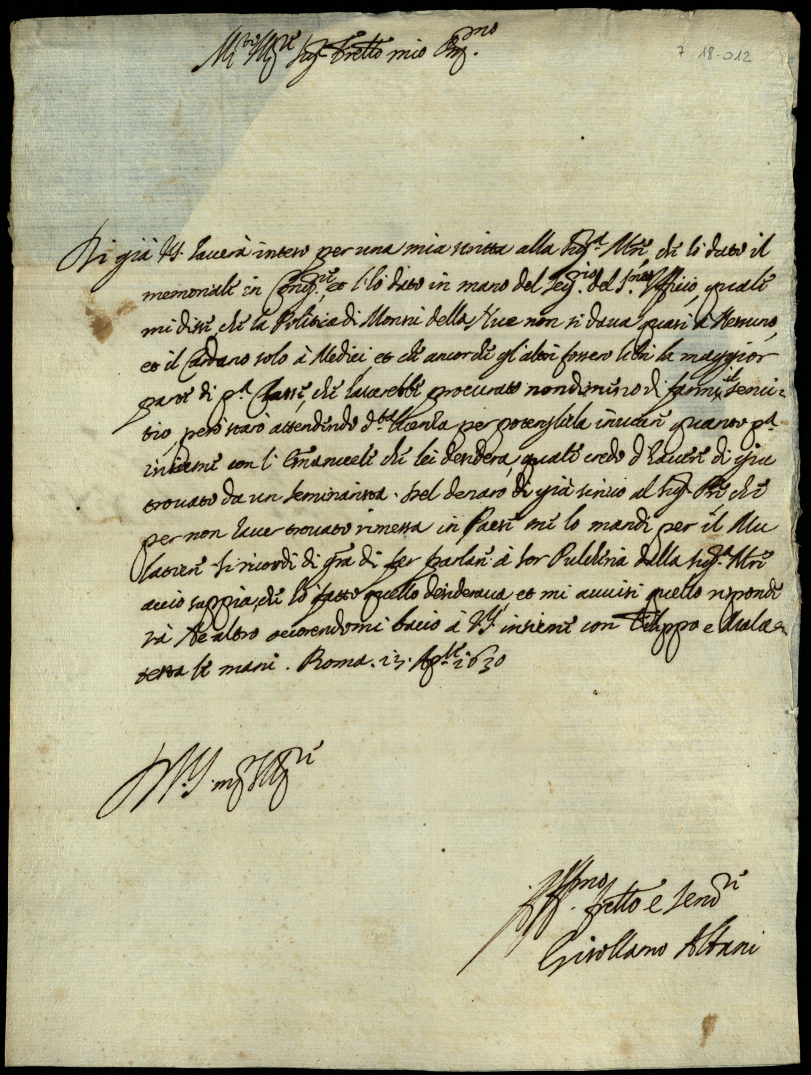 7-18-012
M.to Ill.re Sig.r Fr̃ello mio Oss.mo
Di già V.S. haverà inteso per una mia scritta alla Sig.ra M̃re, che hò dato il
memoriale in Cong.ne, et l'hò dato in mano del Seg.rio del S.to Uffitio, quale
mi disse, che la Politica di Monsù della Nue non si dava quasi à Nessuno,
et il Cardano solo à Medici, et che ancorche gl'altri fossero libri la maggior
parte di p.a Classe, che haverebbe procurato nondimeno di farmi il servi-
tio, però starò attendendo d.ta licenza per potergliela inviare quanto p.a
insieme con l' Emanuele che lei desidera, quale credo d'havere di già
trovato da un Seminarista. Del denaro di già scrissi al Sig.r P̃re che
per non haver trovato rimessa in Paese me lo mandi per il Mu
lattiere. Si ricordi di gr̃a di far parlare à Sor Pulcheria dalla Sig.ra M̃re
acciò sappia, che hò fatto quello desiderava et mi avvisi quello risponde
rà. Ne altro occorrendomi bacio à V.S. insieme con Filippo e Mala=
testa le mani. Roma. 13. Ap.le 1630
D. V.S. m.to Ill.re
Aff.mo fr̃ello e Ser.re
Girollamo Albani